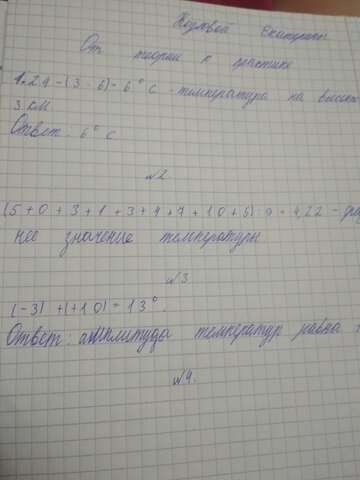 Козловой Екатерины
От теории к практике
1. 24 - (3 · 6) = 6° С - температура на высоте
3 км
Ответ: 6° С
№2
(5 + 0 + 3 + 1 + 3 + 4 + 7 + 10 + 5) : 9 = 4,22 -
нее значение температуры
№3
(-3) + (+10) = 13°.
Ответ: амплитуда температур равна
№4.